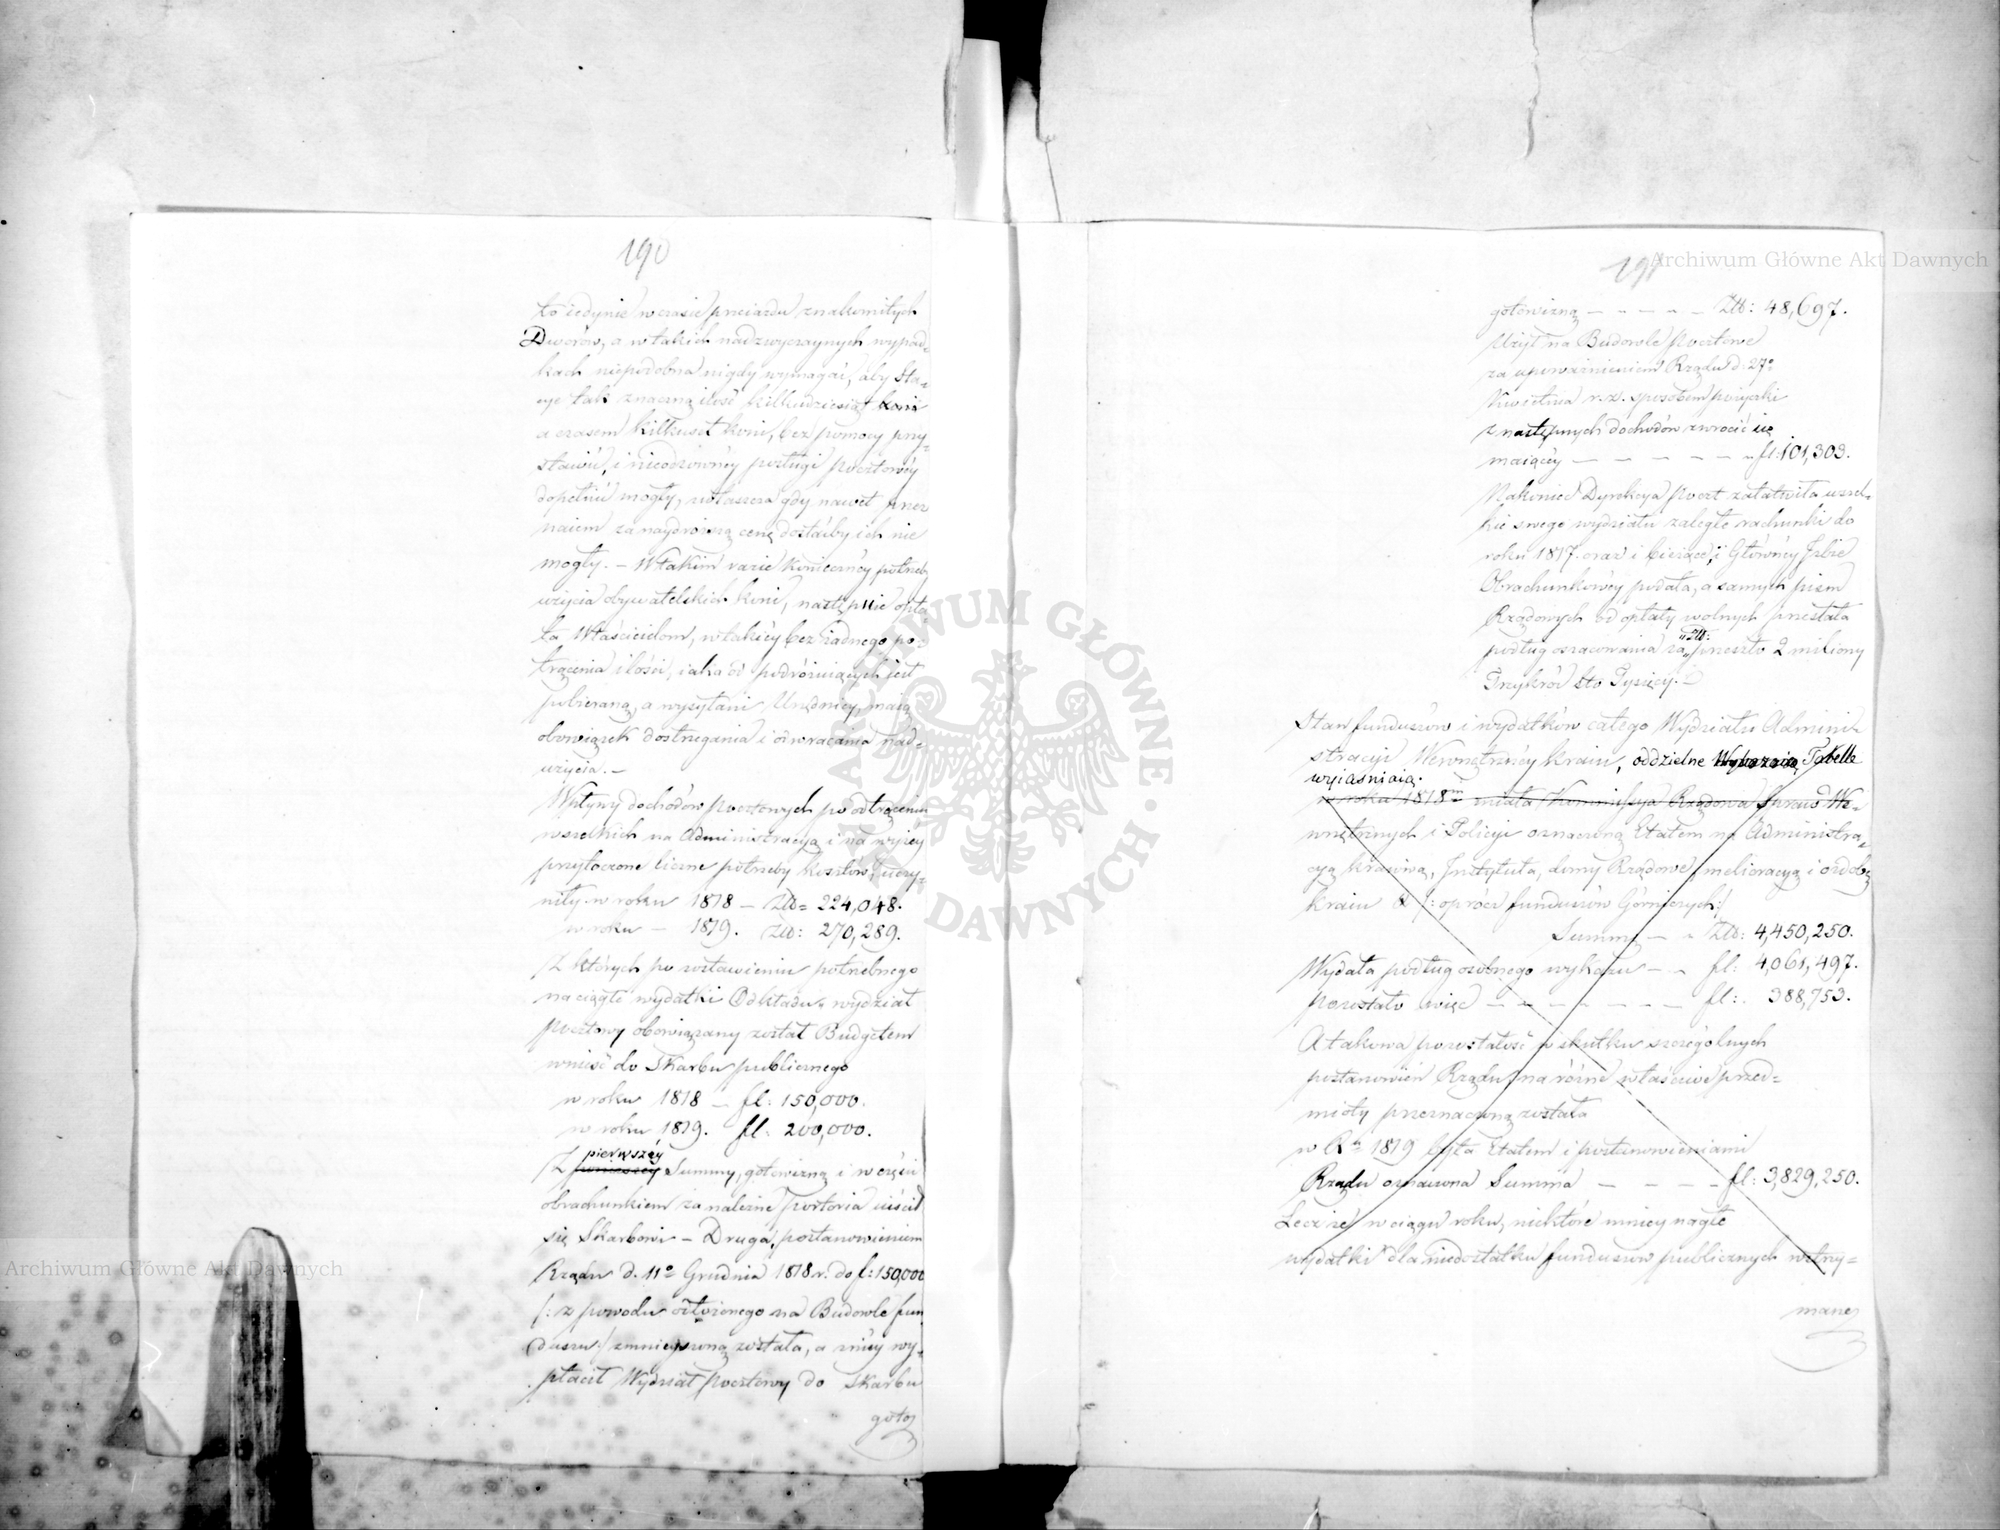 190
to iedynie w czasie przeiazdu znakomitych
Dworów, a w takich nadzwyczaynych wypad=
kach niepodobna nigdy wymagać, aby Sta=
cye tak znaczną ilość kilkudziesiąt koni
a czasem kilkuset koni, bez pomocy przy=
stawić, i nieodzowney posługi pocztowey
dopełnić mogły, zwłaszcza gdy nawet przez
naiem za naydroższą cenę dostać by ich nie
mogły. – W takim razie konieczney potrzeby
użycia obywatelskich koni, następuie opła
ta Właścicielom, w takiey bez żadnego po=
trącenia ilości, iaka od podróżuiących jest
pobieraną, a wysyłani Urzędnicy, maią
obowiązek dostrzegania i odwracania nad=
użycia. –
Wpływy dochodów pocztowych po odtrąceniu
wszelkich na Administracyą i na wyżey
przytoczone liczne potrzeby kosztów, uczy=
niły w roku 1818 – Złł= 224,048.
w roku – 1819. Złł: 270,289.
Z których po zostawieniu potrzebnego
na ciągłe wydatki Odkładu, wydział
pocztowy obowiązany został Budgetem
wnieść do Skarbu publicznego
w roku 1818 – fl: 150,000.
w roku 1819. fl. 200,000.
pierwszéy
Z Summy, gotowizną i w części
obrachunkiem za należne portoria uiścił
się Skarbowi – Druga, postanowieniem
Rządu d. 11º Grudnia 1818 r. do f: 150,000
/: z powodu ośtożonego na Budowle fun
duszu :/ zmnieyszoną została, a z niéy wy=
płacił Wydział Pocztowy do Skarbu
goto
191
gotowizną – – – – – Złł: 48,697.
Użył na Budowle pocztowe
za upoważnieniem Rządu d. 27º
Kwietnia r. z. sposobem pożyczki
z następnych dochodów zwrócić się
maiącéy – – – – – – fl: 101,303.
Nakoniec Dyrekcya Poczt załatwiła wszel=
kie swego wydziału zaległe rachunki do
roku 1817. oraz i bieżące, i Główney Izbie
Obrachunkowéy podała, a samych pism
Rządowych od opłaty wolnych przesłała
Złł:
podług oszacowania za przeszło 2 miliony
Trzykroć sto Tysięcy. –
Stan funduszów i wydatków całego Wydziału Admini=
stracyi Wewnętrznéy kraiu, oddzielne Tabelle
wyiaśniaią.
w roku 1818m miała Kommissya Rządowa Spraw We=
wnętrznych i Policyi oznaczoną Etatem na Administra=
cyą kraiową, Instytuta, domy Rządowe, melioracyą i ozdobę
kraiu & /: oprócz funduszów Górniczych :/
Summę – – Złł: 4,450,250.
Wydała podług osobnego wykazu – – fl: 4,061,497.
pozostało więc – – – – – – – fl: 388,753.
A takowa pozostałość w skutku szczególnych
postanowień Rządu, na różne właściwe przed=
mioty przeznaczoną została
w Ru 1819 była Etatem i postanowieniami
Rządu oznaczona Summa – – – – fl: 3,829,250.
Lecz że w ciągu roku, niektóre mniey nagłe
wydatki dla niedostatku funduszów publicznych wstrzy=
mane
Archiwum Główne Akt Dawnych
Archiwum Główne Akt Dawnych
ARCHIWUM GŁÓWNE AKT DAWNYCH